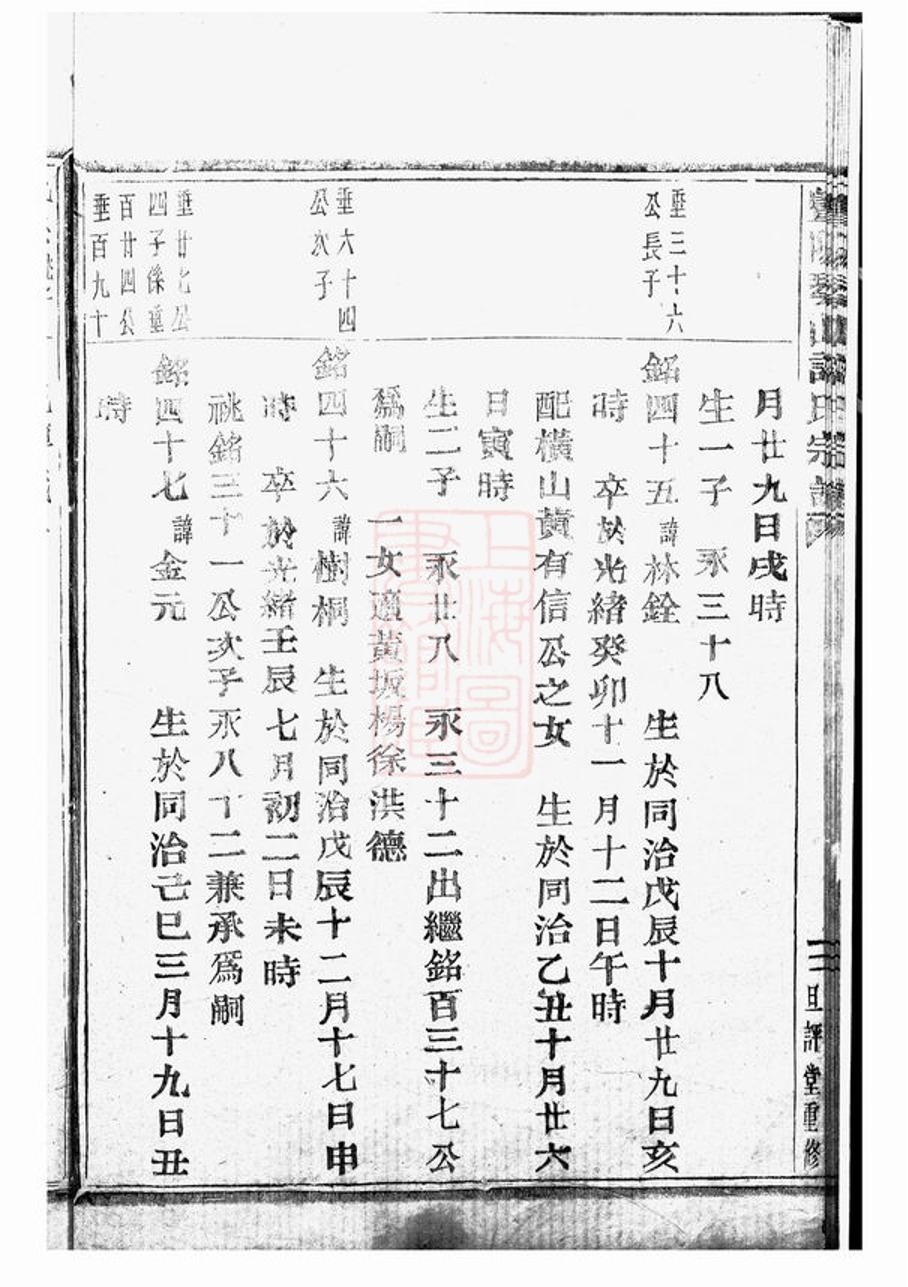 山許氏宗譜
旦評堂重修
月廿九日戌時
生一子　永三十八
垂三十六
公長子
銘四十五 諱 林銓　生於同治戊辰十月廿九日亥
時　卒於光緒癸卯十一月十二日午時
配橫山黃有信公之女　生於同治乙丑十月廿六
日寅時
生二子　永廿八　永三十二出繼銘百三十七公
爲嗣　一女適黃坂楊徐洪德
垂六十四
公次子
銘四十六 諱 樹桐　生於同治戊辰十二月十七日申
時　卒於光緒壬辰七月初二日未時
祧銘三十一公次子永八十二兼承爲嗣
垂廿七公
四子係垂
百廿四公
垂百九十
銘四十七 諱 金元　生於同治己巳三月十九日丑
時
上海圖書館藏